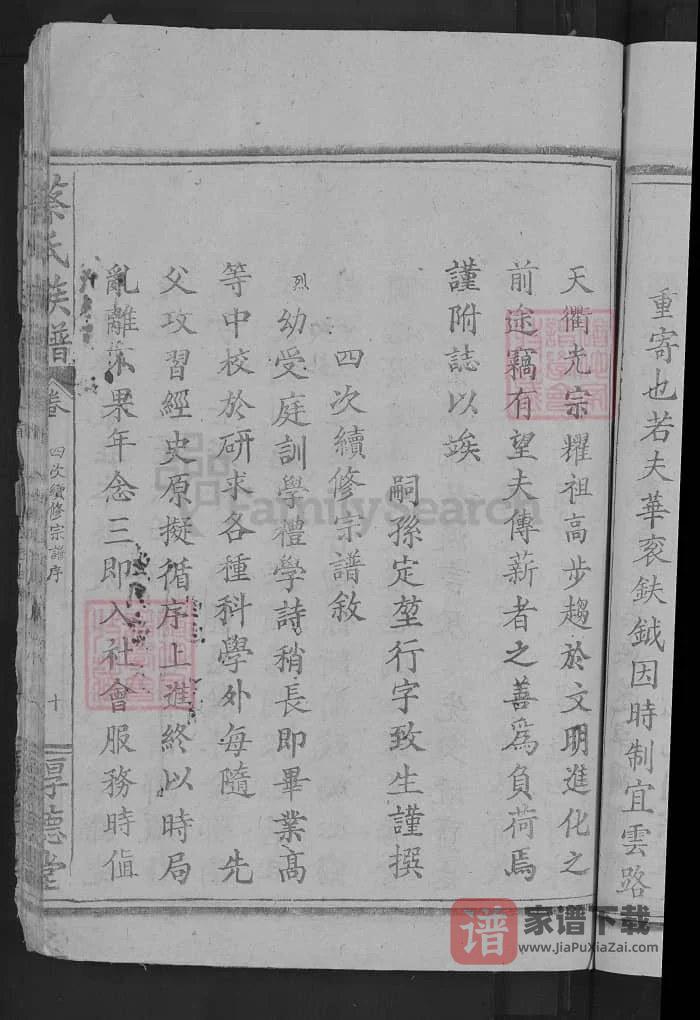 重寄也若夫華衮鈇鉞因時制宜雲路
天衢光宗耀祖高步趨於文明進化之
前途竊有望夫傳薪者之善爲負荷焉
謹附誌以竢
嗣孫定堃行字致生謹撰
四次續修宗譜敘
烈幼受庭訓學禮學詩稍長即畢業高
等中校於研求各種科學外每隨 先
父攻習經史原擬循序上進終以時局
亂離不果年念三即入社會服務時值
蔡氏族譜 卷 四次續修宗譜序 十 厚德堂
FamilySearch
谱 家谱下载
www.JiaPuXiaZai.com